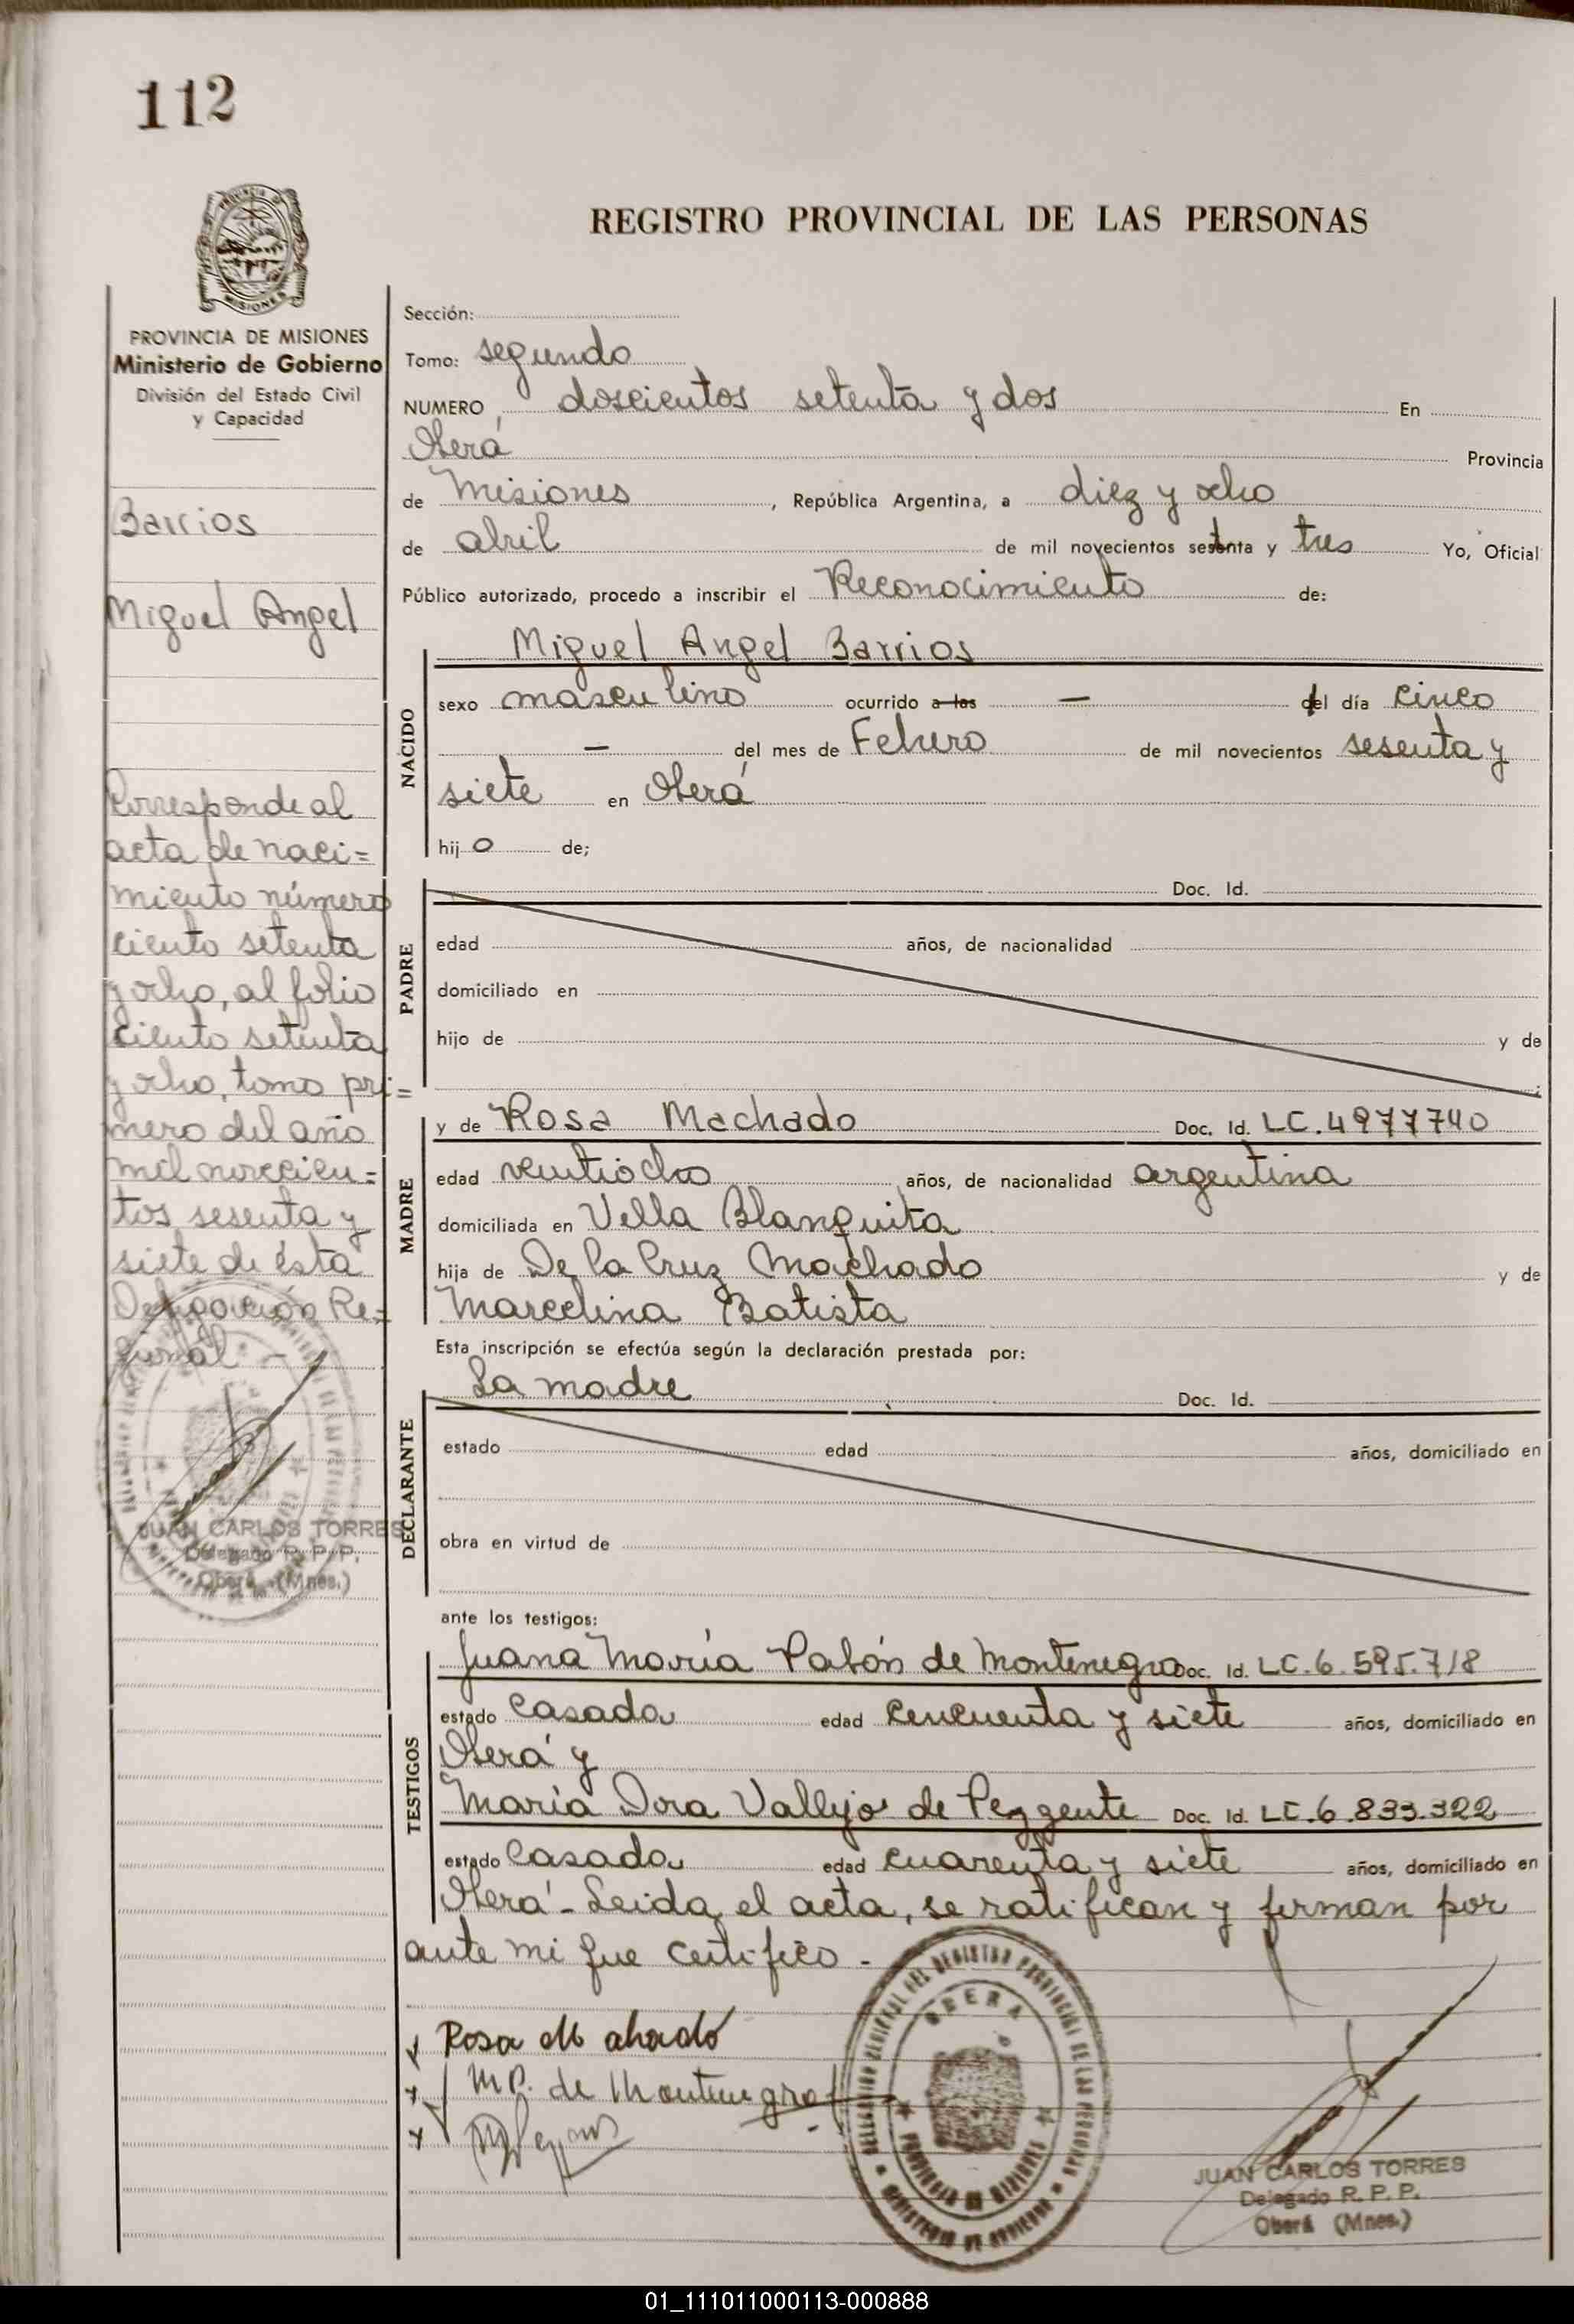 112
REGISTRO PROVINCIAL DE LAS PERSONAS
PROVINCIA DE MISIONES
Ministerio de Gobierno
División del Estado Civil
y Capacidad
Barrios
Miguel Angel
Corresponde al
acta de naci=
miento número
ciento setenta
y ocho, al folio
ciento setenta
y ocho, tomo pri=
mero del año
mil novecien=
tos sesenta y
siete de ésta
Delegación Re=
gional -
JUAN CARLOS TORRES
Delegado R. P. P.
Oberá (Mnes.)
Sección:
Tomo: segundo
NUMERO doscientos setenta y dos En
Oberá Provincia
de Misiones , República Argentina, a diez y ocho
de abril de mil novecientos setenta y tres Yo, Oficial
Público autorizado, procedo a inscribir el Reconocimiento de:
NACIDO
Miguel Angel Barrios
sexo masculino ocurrido a las — del día cinco
— del mes de Febrero de mil novecientos sesenta y
siete en Oberá
hijo de;
PADRE
Doc. Id.
edad años, de nacionalidad
domiciliado en
hijo de y de
;
MADRE
y de Rosa Machado Doc. Id. LC.4977740
edad veintiocho años, de nacionalidad argentina
domiciliada en Villa Blanquita
hija de De la Cruz Machado y de
Marcelina Batista
Esta inscripción se efectúa según la declaración prestada por:
DECLARANTE
La madre Doc. Id.
estado edad años, domiciliado en
obra en virtud de
ante los testigos:
TESTIGOS
Juana María Pabón de Montenegro Doc. Id. LC.6.595.718
estado Casada edad cincuenta y siete años, domiciliado en
Oberá y
María Dora Vallejo de Pezzente Doc. Id. LC.6.833.322
estado Casada edad cuarenta y siete años, domiciliado en
Oberá - Leida el acta, se ratifican y firman por
ante mi que certifico -
Rosa Machado
M P. de Montenegro
DELEGACION REGIONAL DEL REGISTRO PROVINCIAL DE LAS PERSONAS
OBERA
PROVINCIA DE MISIONES
MINISTERIO DE GOBIERNO
JUAN CARLOS TORRES
Delegado R. P. P.
Oberá (Mnes.)
01_111011000113-000888